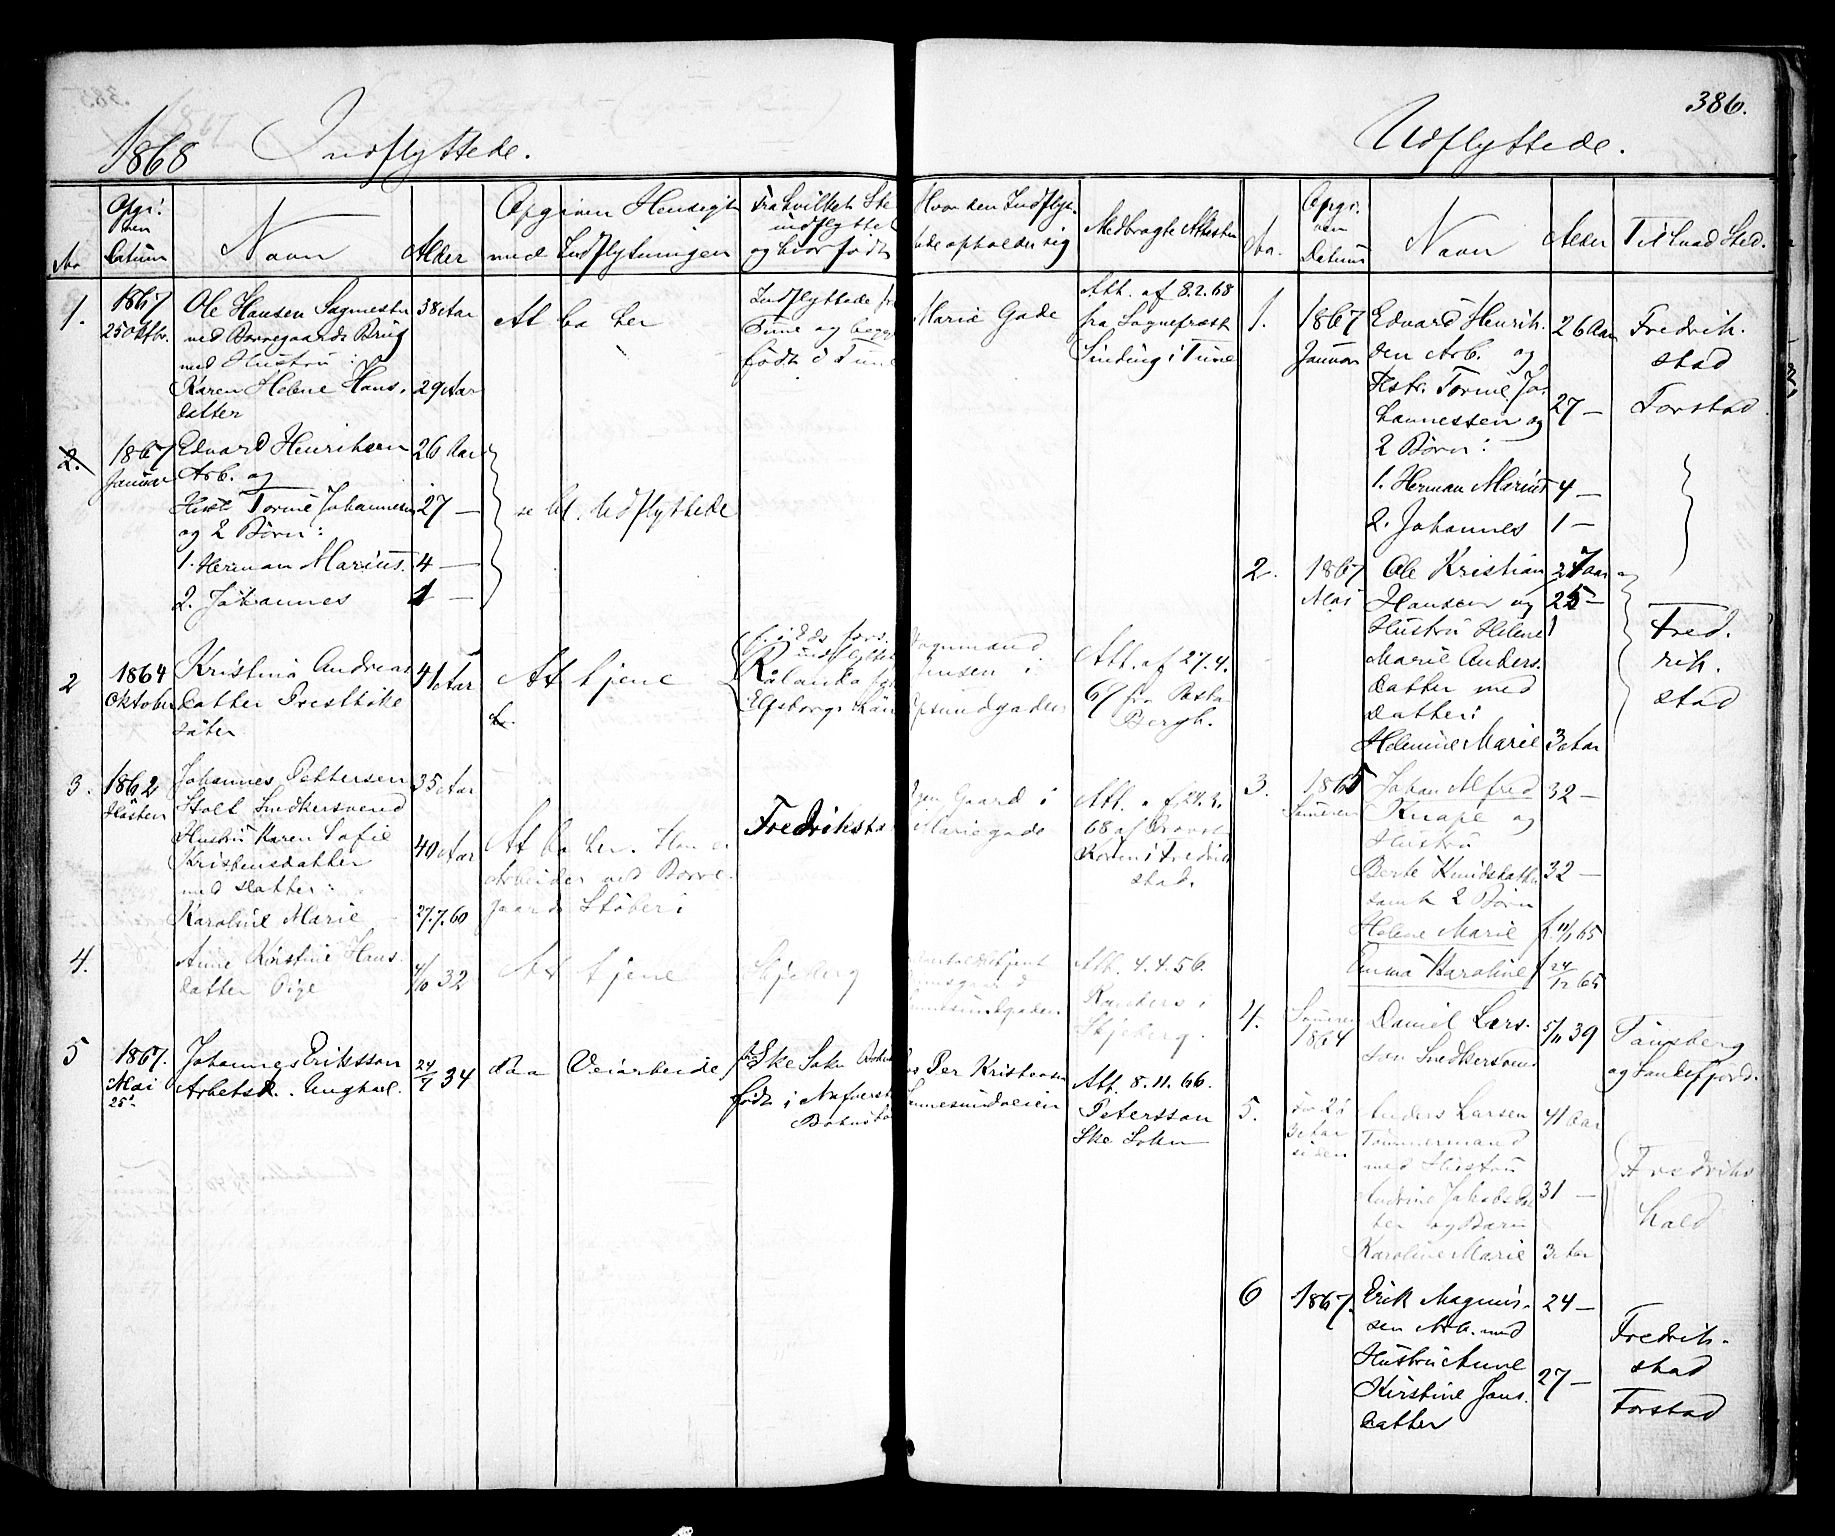 386.
1868 Indflyttede.
Udflyttede.
No
Opgi-
ven
Datum
Navn
Alder
Opgiven Hensigt
med Indflytningen
Fra hvilket Ste
indflyttet
og hvor født
Hvor den Indflyt-
tede opholder sig
Medbragte Attester
1.
1867
25 Oktbr.
Ole Hansen Sagmester
ved Borregaards Brug
med Hustru:
Karen Helene Hans-
datter
38 Aar
29 Aar
At bo her
Indflyttede fra
Tune og begge
født i Tune
Maria Gade
Att. af 8.2.68
fra Sognepræst
Sinding i Tune
2.
1867
Januar
Edvard Henriksen
Arb. og
Hust Torine Johannesen
og 2 Børn:
1. Herman Marius.
2. Johannes
26 Aar
27 —
4 —
1 —
se bl. Udflyttede
2
1864
Oktober
Kristina Andreas
datter Prestbøke
säter
41 Aar
At tjene
Att. af 27.4.
67 fra Pastor
Bergh.
3.
1862
Høsten
Johannes Pettersen
Holt Snedkersvend
Hustru Karen Sofie
Kristensdatter
med datter:
Karoline Marie
35 Aar
40 Aar
27.7.60
At bo her. Han er
Arbeider ved Borre-
gaards Støberi
Fredriksta
Egen Gaard i
Mariegade
Att. af 24.3.
68 af
Korten i Fredrik
stad.
4.
Anne Kirstine Hans-
datter Pige
4/10 32
At tjene
Skjeberg
Att. 4.4.56.
Randers i
Skjeberg.
5
1867.
Mai
25de
Johannes Eriksson
Arbetsk. Ungkael.
24/7 34
daa Veiarbeide
fra Ske Sokn
født i Næfverst
Bohuslän
Per Kristensen
Sannesundveien
Att. 8.11.66.
Petersson
Ske Sokn
No.
Opgi-
ven
Datum
Navn
Alder
Til hvad Sted.
1.
1867
Januar
Edvard Henrik-
sen Arb. og
Hstr. Torine Jo-
hannessen og
2 Børn:
1. Herman Marius
2. Johannes
26 Aar
27 —
4 —
1 —
Fredrik-
stad
Forstad
2.
1867
Mai
Ole Kristian
Hansen og
Hustru Helene
Marie Anders-
datter med
Datter:
Helmine Marie
27 Aar
25 —
3 Aar
Fred-
rik-
stad
3.
1865
Sommeren
Johan Alfred
Knape og
Hustru
Berte Knudsdatter
samt 2 Børn
Helene Marie
Emma Karoline
32 —
32 —
f. 11/1 65
f 24/12 65
4.
Sommeren
1864
Daniel Lars-
son Snedkersvend
5/11 39
Tønsberg
og Sandefjord.
5.
3 Aar
siden
Anders Larsen
Tømmermand
med Hustru
Andrine Jakobsdat
ter og Barn
Karoline Marie
41 Aar
31 —
3 Aar
Fredriks
hald
6
1867.
Erik Magnus-
sen Arb. med
Hustru Anne
Kirstine Jans-
datter
24 —
27 —
Fredrik-
stad
Forstad